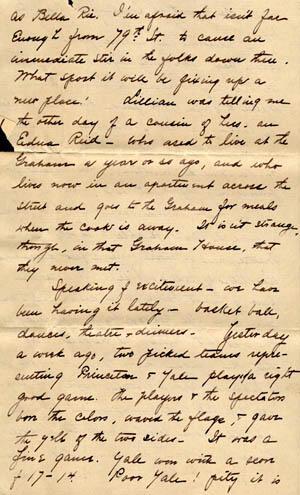 as Bella Rie. I'm afraid that isn't far
Enough from 79th St. to cause an
immediate stir in the folks down there.
What sport it will be fixing up a
new place! Lillian was telling me
the other day of a cousin of hers. an
Edna Reid - who used to live at the
Graham a year or so ago, and who
lives now in an apartment across the
street and goes to the Graham for meals
when the cook is away. It is isn't strange,
though, in that Graham House, that
they never met.
Speaking of excitement - we have
been having it lately - basket ball,
dances, theatre - dinners. Yesterday
a week ago, two picked teams repre-
senting Princeton & Yale played a right
good game. The players & the spectators
bore the colors, waved the flags, & gave
the yells of the two sides - It was a
fine game. Yale won with a score
of 17-14. Poor Yale! pity it is